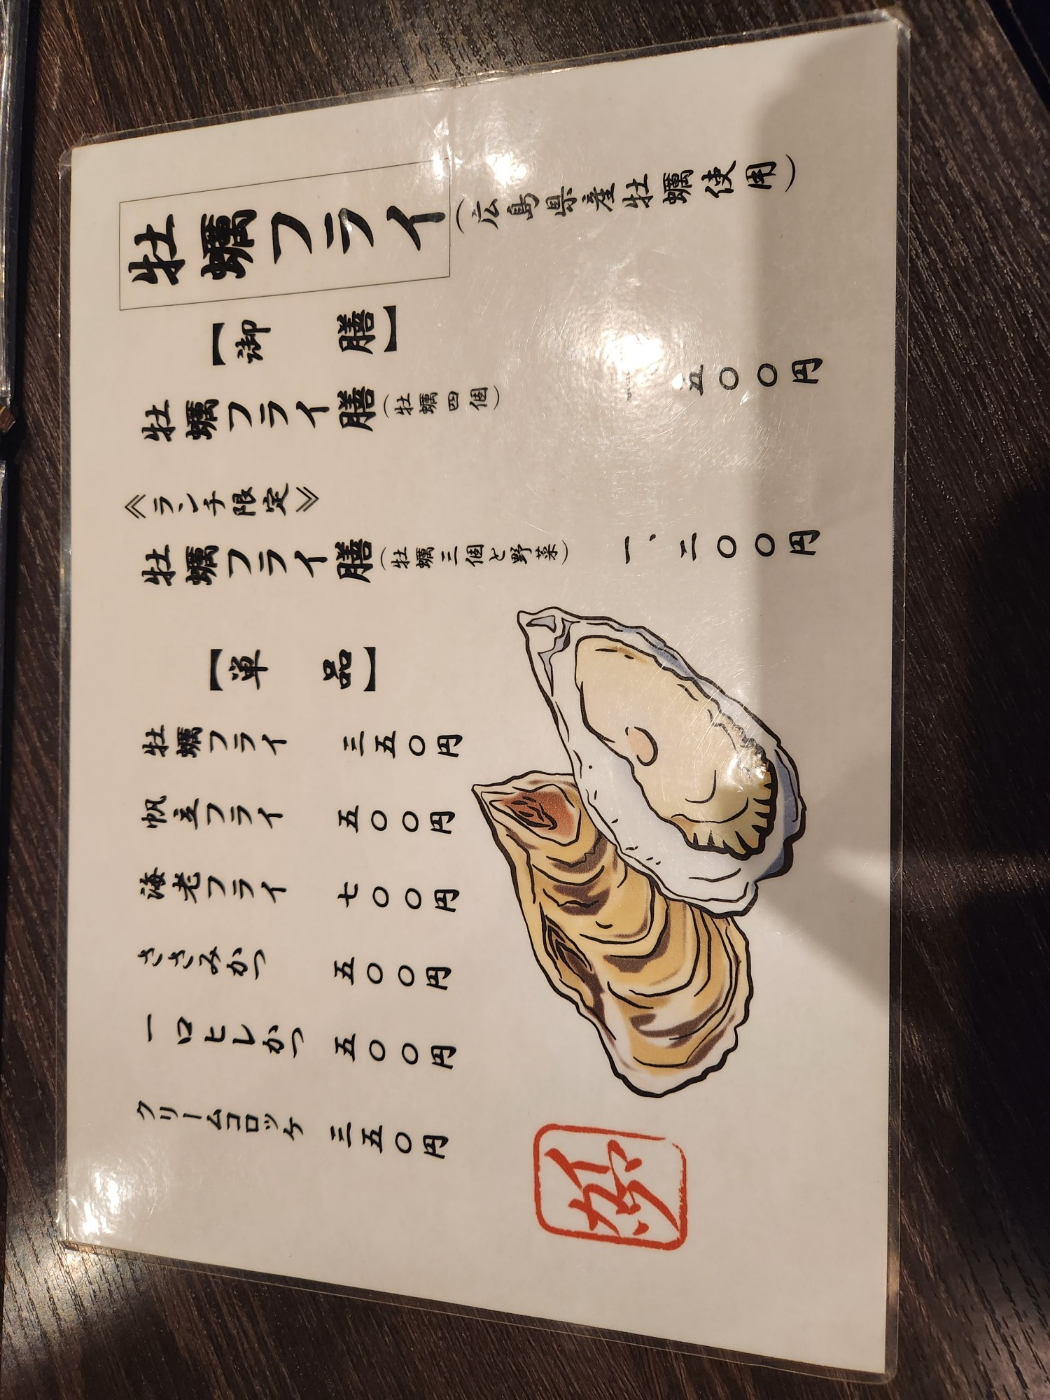 牡蠣フライ
(広島県産牡蠣使用)
【御膳】
牡蠣フライ膳(牡蠣四個) 五〇〇円
《ランチ限定》
牡蠣フライ膳(牡蠣三個と野菜) 一、二〇〇円
【単品】
牡蠣フライ 三五〇円
帆立フライ 五〇〇円
海老フライ 七〇〇円
ささみかつ 五〇〇円
一口ヒレかつ 五〇〇円
クリームコロッケ 三五〇円